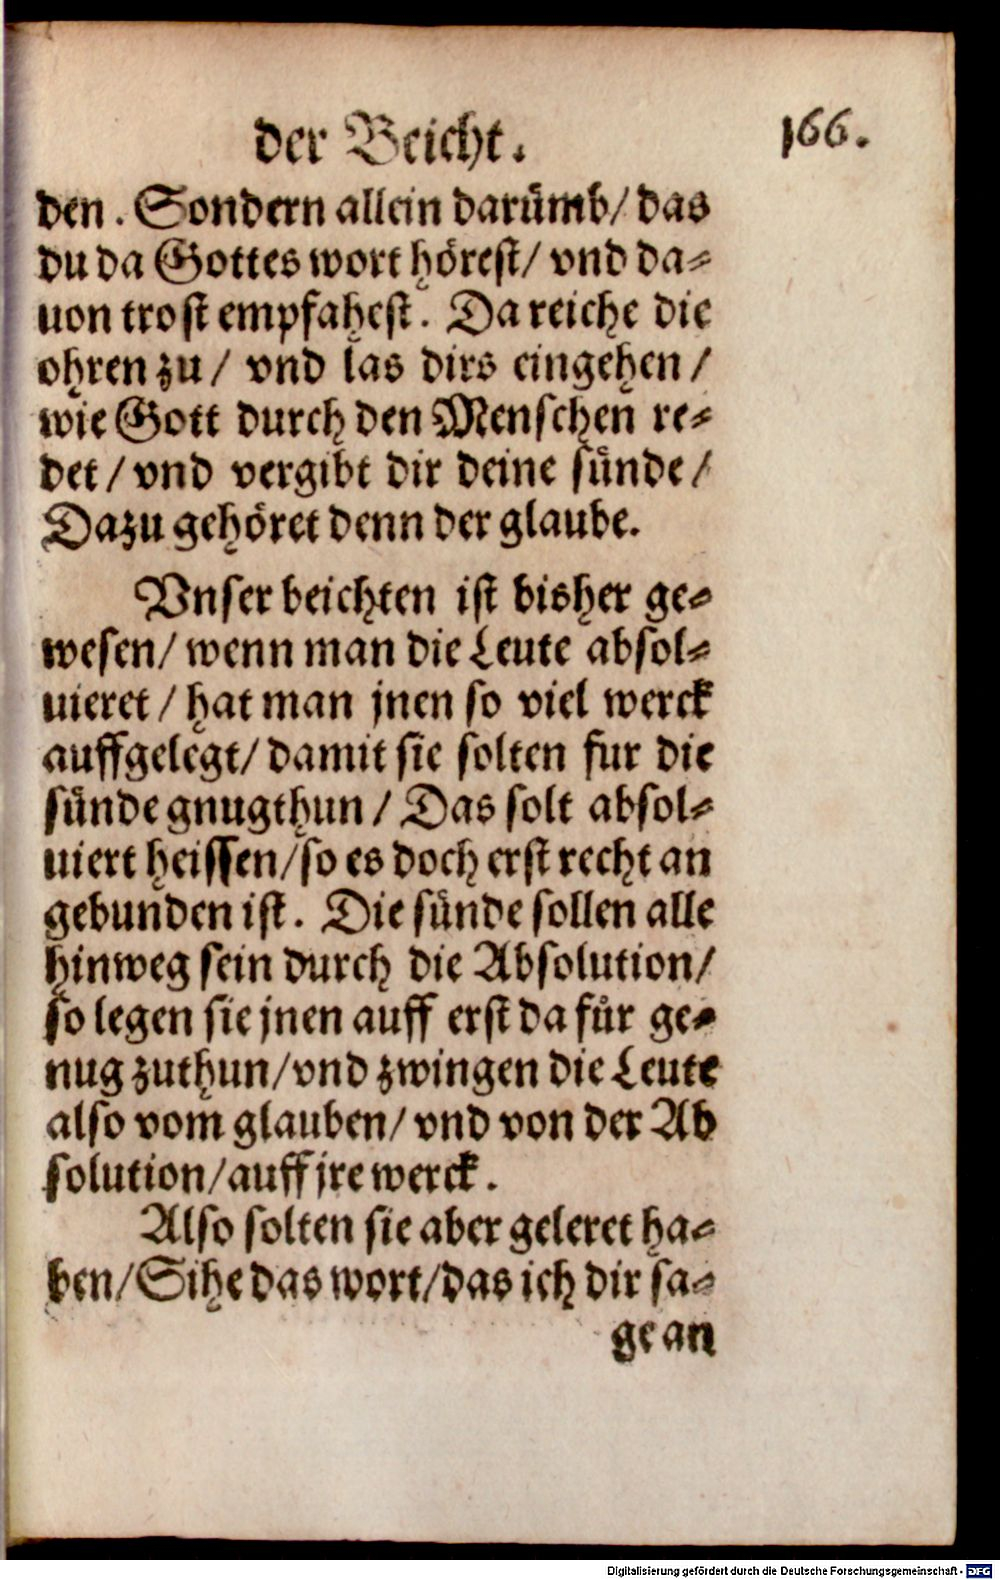 der Beicht. 166.
den. Sondern allein darümb/ das
du da Gottes wort hörest/ vnd da⸗
uon trost empfahest. Da reiche die
ohren zu/ vnd las dirs eingehen/
wie Gott durch den Menschen re⸗
det/ vnd vergibt dir deine sünde/
Dazu gehöret denn der glaube.
Vnser beichten ist bisher ge⸗
wesen/ wenn man die Leute absol⸗
uieret/ hat man jnen so viel werck
auffgelegt/ damit sie solten fur die
sünde gnugthun/ Das solt absol⸗
uiert heissen/ so es doch erst recht an
gebunden ist. Die sünde sollen alle
hinweg sein durch die Absolution/
so legen sie jnen auff erst da für ge⸗
nug zuthun/ vnd zwingen die Leute
also vom glauben/ vnd von der Ab
solution/ auff jre werck.
Also solten sie aber geleret ha⸗
ben/ Sihe das wort/ das ich dir sa⸗
ge an
Digitalisierung gefördert durch die Deutsche Forschungsgemeinschaft - DFG